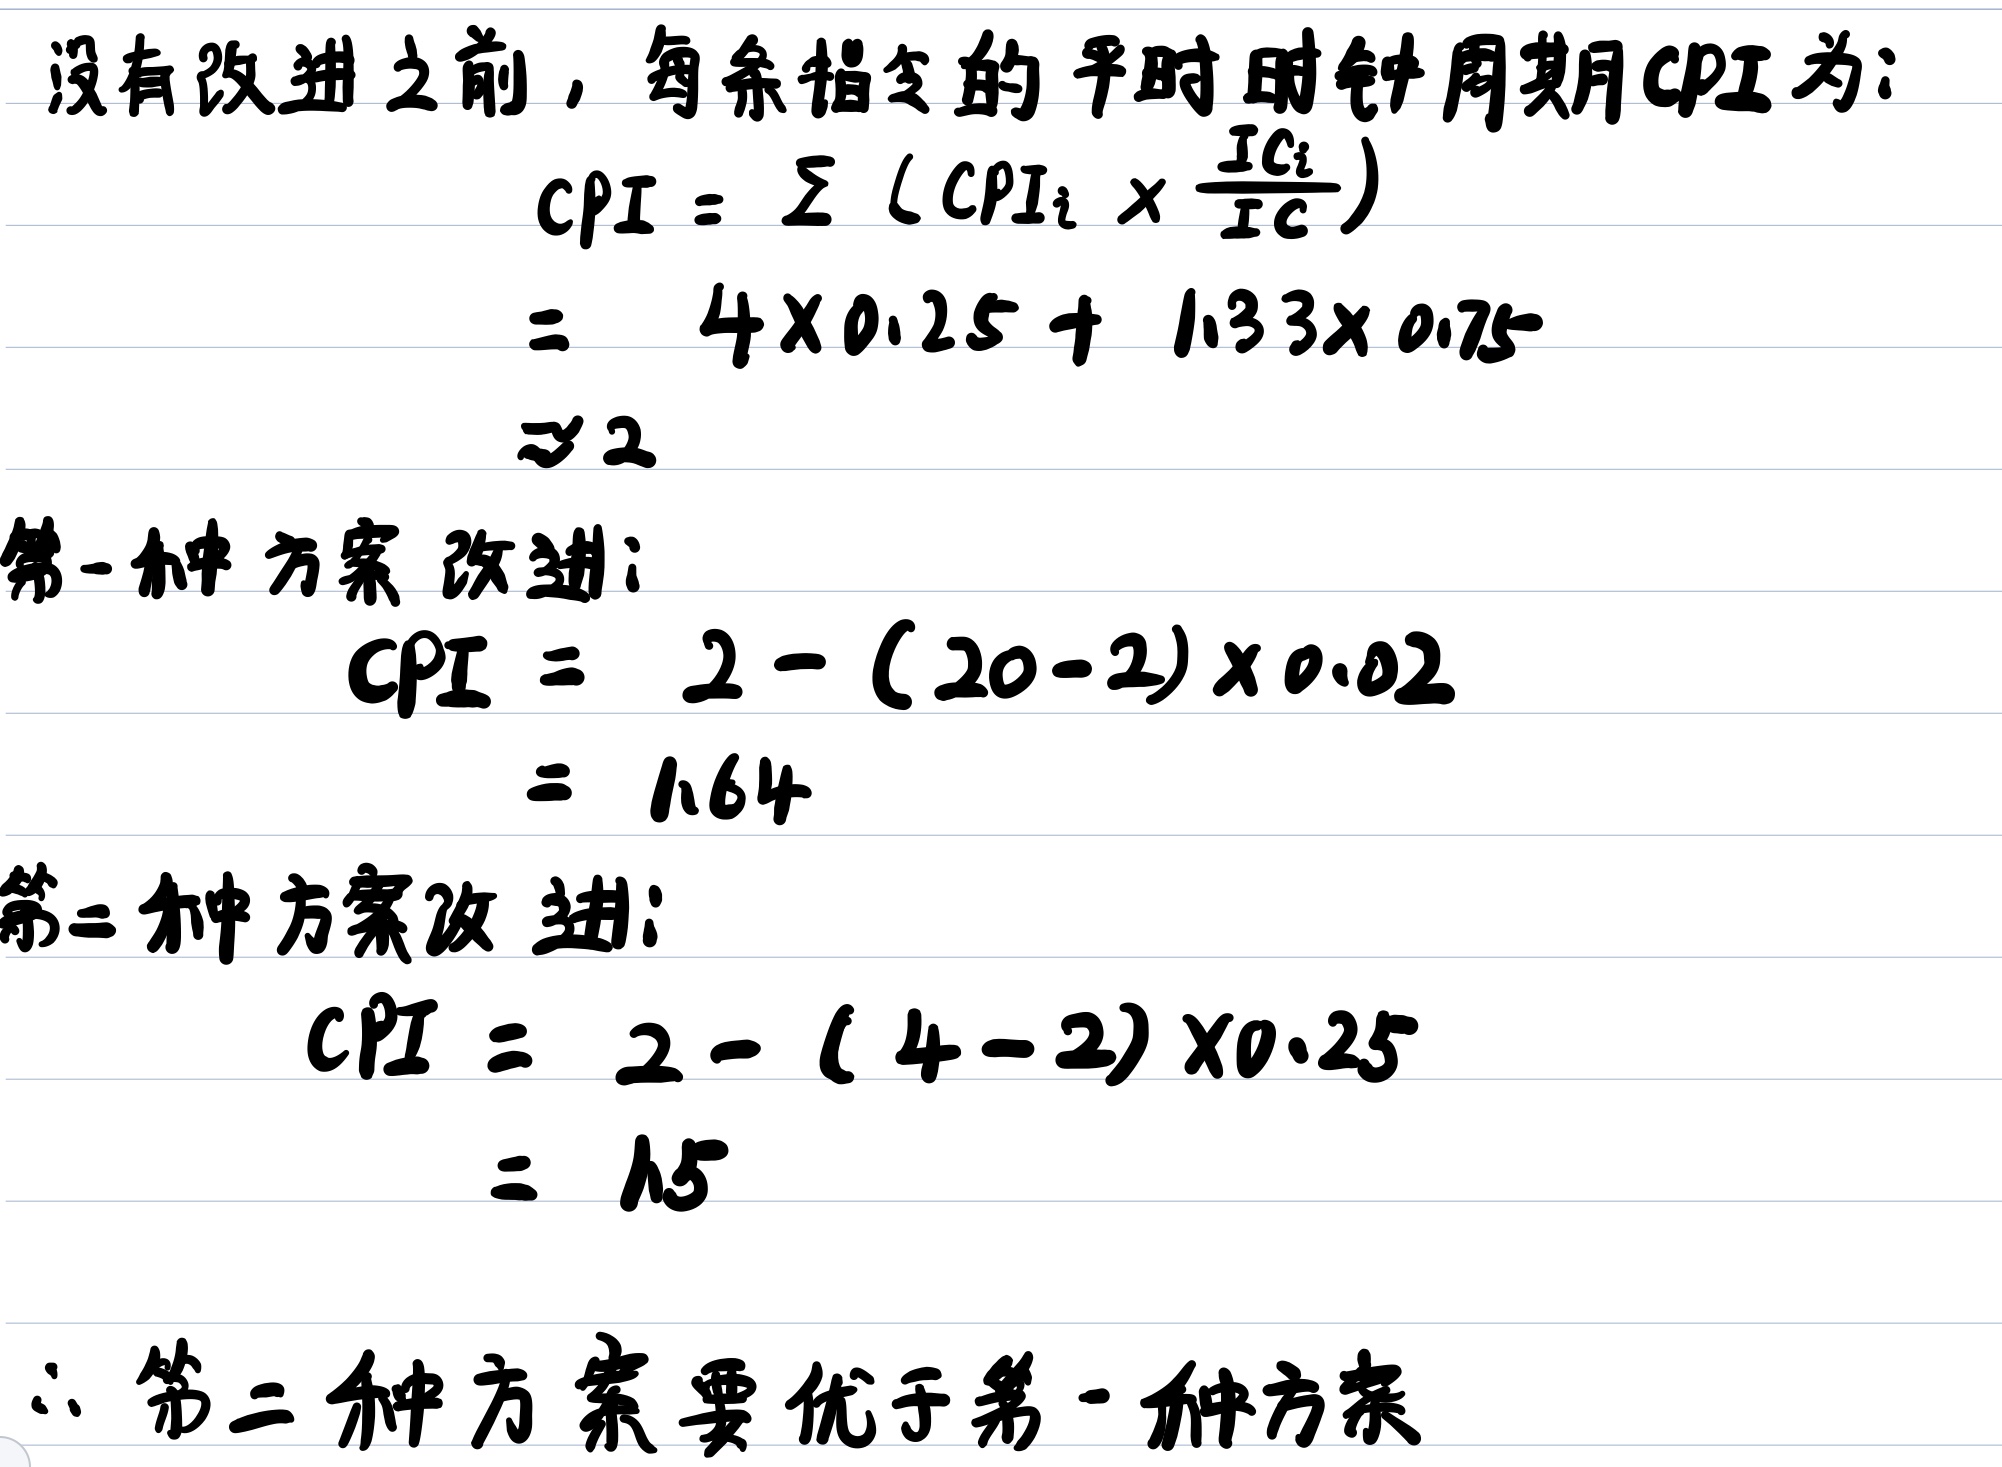 没有改进之前，每条指令的平时时钟周期CPI为：
CPI = Σ (CPIi × ICi/IC)
= 4×0.25 + 1.33×0.75
≈ 2
第一种方案改进：
CPI = 2 - (20-2)×0.02
= 1.64
第二种方案改进：
CPI = 2 - (4-2)×0.25
= 1.5
∴ 第二种方案要优于第一种方案